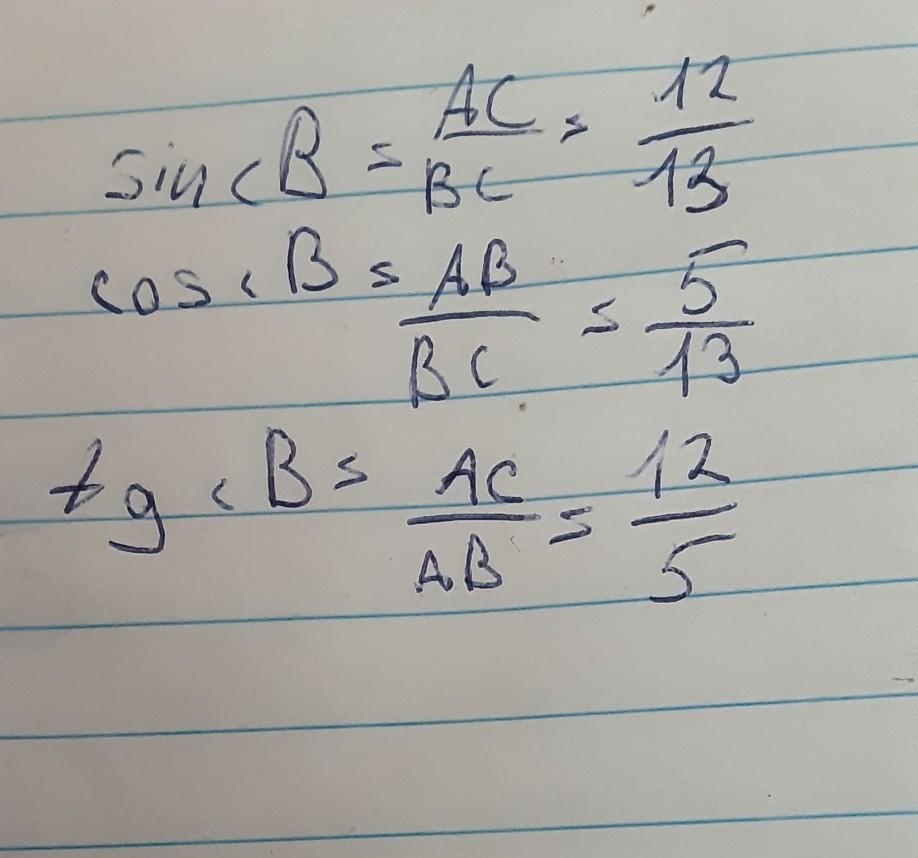 sin<B = AC/BC = 12/13
cos<B = AB/BC = 5/13
tg<B = AC/AB = 12/5